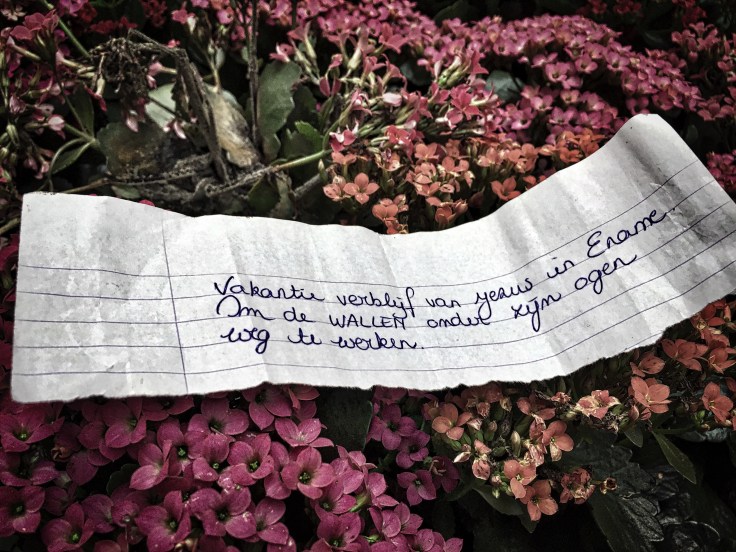 Vakantie verblijf van yezus in Ename.
Om de WALLEN onder zijn ogen
weg te werken.